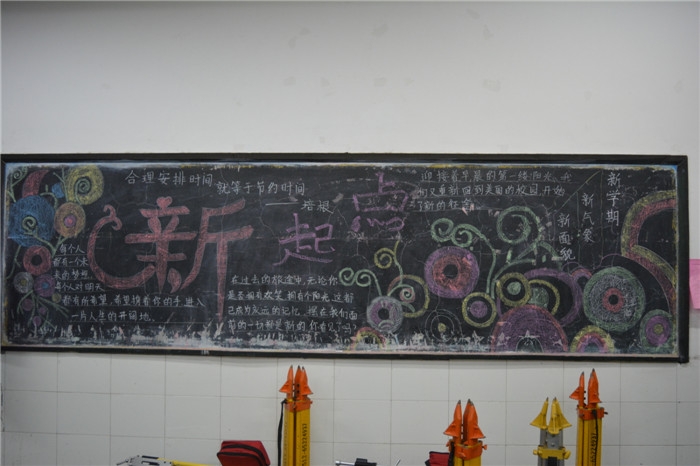 合理安排时间
就等于节约时间
——培根
新起点
迎接着早晨的第一缕阳光,我
们又重新回到美丽的校园,开始
了新的征途。
新学期
新气象
新面貌
每个人
都有一个未
来的梦想
每个人对明天
都有所希冀,希望接着你的手进入
一片人生的开阔地。
在过去的旅途中,无论你
是否拥有欢笑 拥有阳光,这都
已成为永远的记忆,现在我们面
前的一切都是新的